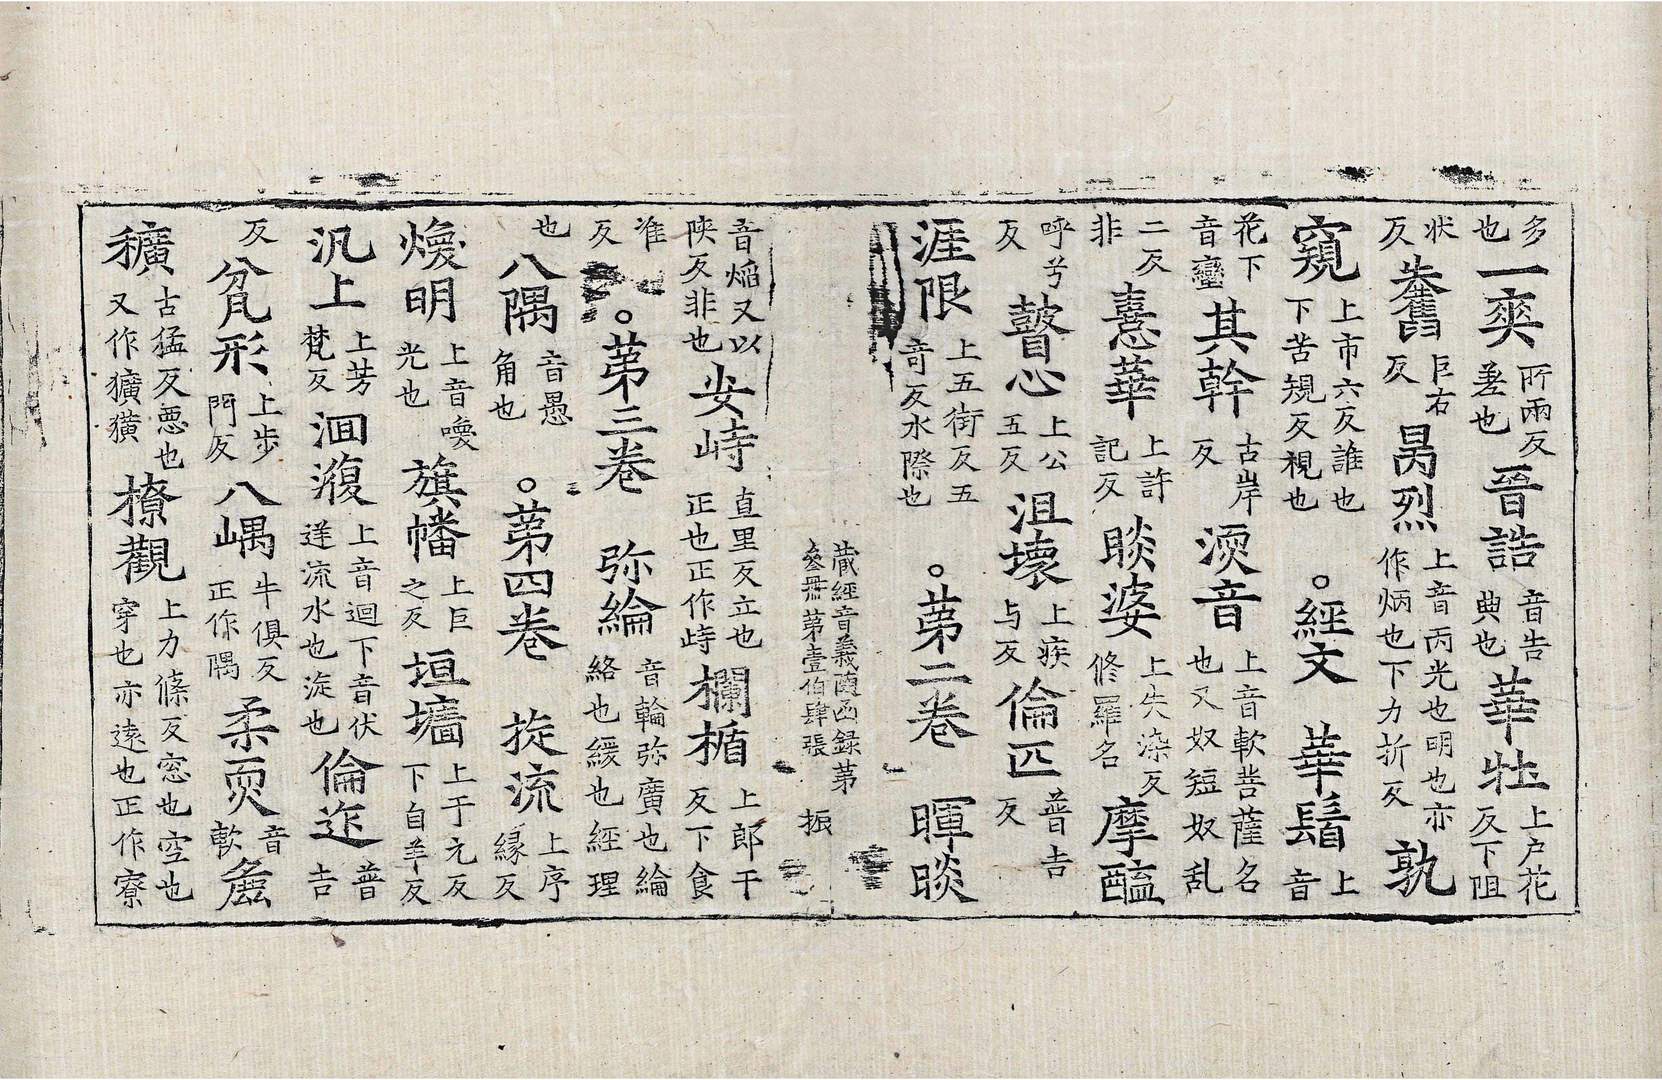 多也一奭所兩反差也晉誥音告典也華壯上戸花反下阻
状反舊巨右反昺烈上音丙光也明也亦作炳也下力折反孰
窺上市六反誰也下苦規反視也。經文華鬚上音
花下音鸞其幹古岸反渜音上音軟菩薩名也又奴短奴乱
二反非憙華上許記反睒婆上失染反修羅名摩醯
呼兮反瞽心上公五反沮壞上疾与反倫匹普吉反
涯限上五街反五竒反水際也。苐二卷暉睒
藏經音義随函録苐叄冊苐壹伯肆張振
音焔又以陕反非也安峙直里反立也正也正作峙欄楯上郎干反下食
准反。苐三卷弥綸音輪弥廣也綸絡也緩也經理
也八隅音愚角也。苐四卷㳬流上序縁反
煥明上音喚光也旗幡上巨之反垣墻上于元反下自羊反
汎上上芳梵反洄澓上音迴下音伏逆流水也㳬也倫迮普吉
反貧形上步門反八嵎牛俱反正作隅柔耎音軟麁
穬古猛反悪也又作獷獚橑觀上力條反窓也空也穿也亦逺也正作寮